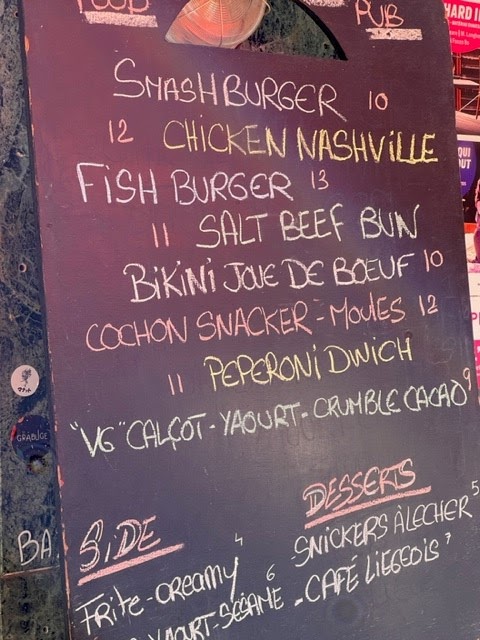 FOOD
PUB
SMASHBURGER 10
12 CHICKEN NASHVILLE
FISH BURGER 13
11 SALT BEEF BUN
BIKINI JOUE DE BŒUF 10
COCHON SNACKER - MOULES 12
11 PEPERONIDWICH
"VG" CALÇOT - YAOURT - CRUMBLE CACAO 9
SIDE
Frite - creamy 4
YAOURT - SÉSAME 6
DESSERTS
SNICKERS À LECHER 5
- CAFÉ LIEGEOIS 7
GRABUGE
BA
HARD
QUI
OUT